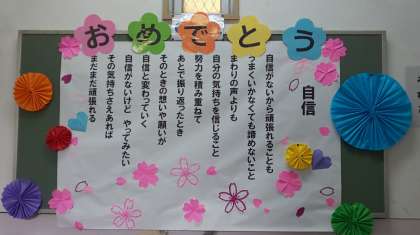 おめでとう
自信
自信がないから頑張れることも
うまくいかなくても諦めないこと
まわりの声よりも
自分の気持ちを信じること
努力を積み重ねて
あとで振り返ったとき
そのときの想いや願いが
自信と変わっていく
自信がないけど やってみたい
その気持ちさえあれば
まだまだ頑張れる